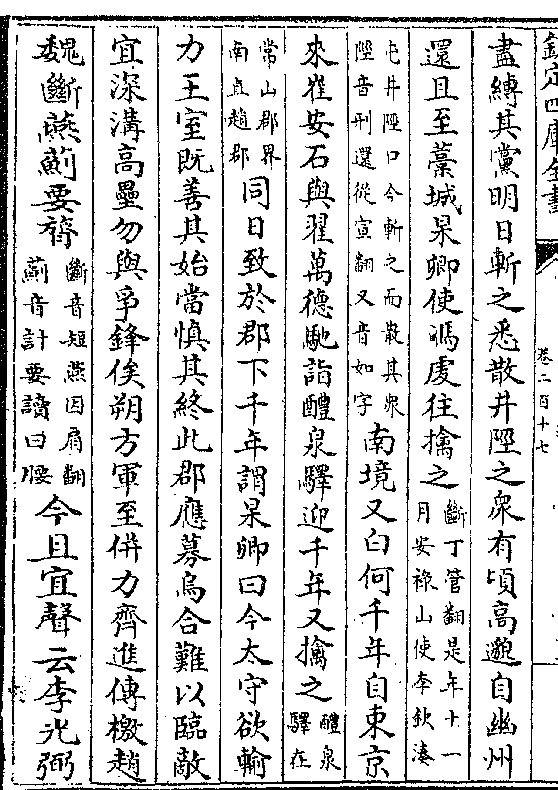 欽定四庫全書
卷二百十七
盡縛其黨明日斬之悉散井陘之衆有頃高邈自幽州
還且至藁城杲卿使馮虔往擒之斷丁管翻是年十一月安祿山使李欽湊
屯井陘口今斬之而散其衆陘音刑還從宣翻又音如字南境又白何千年自東京
來崔安石與翟萬德馳詣醴泉驛迎千年又擒之醴泉驛在
常山郡界南直趙郡同日致於郡下千年謂杲卿曰今太守欲輸
力王室既善其始當慎其終此郡應募烏合難以臨敵
宜深溝高壘勿與爭鋒俟朔方軍至併力齊進傳檄趙
魏斷燕薊要膂斷音短燕因肩翻薊音計要讀曰腰今且宜聲云李光弼